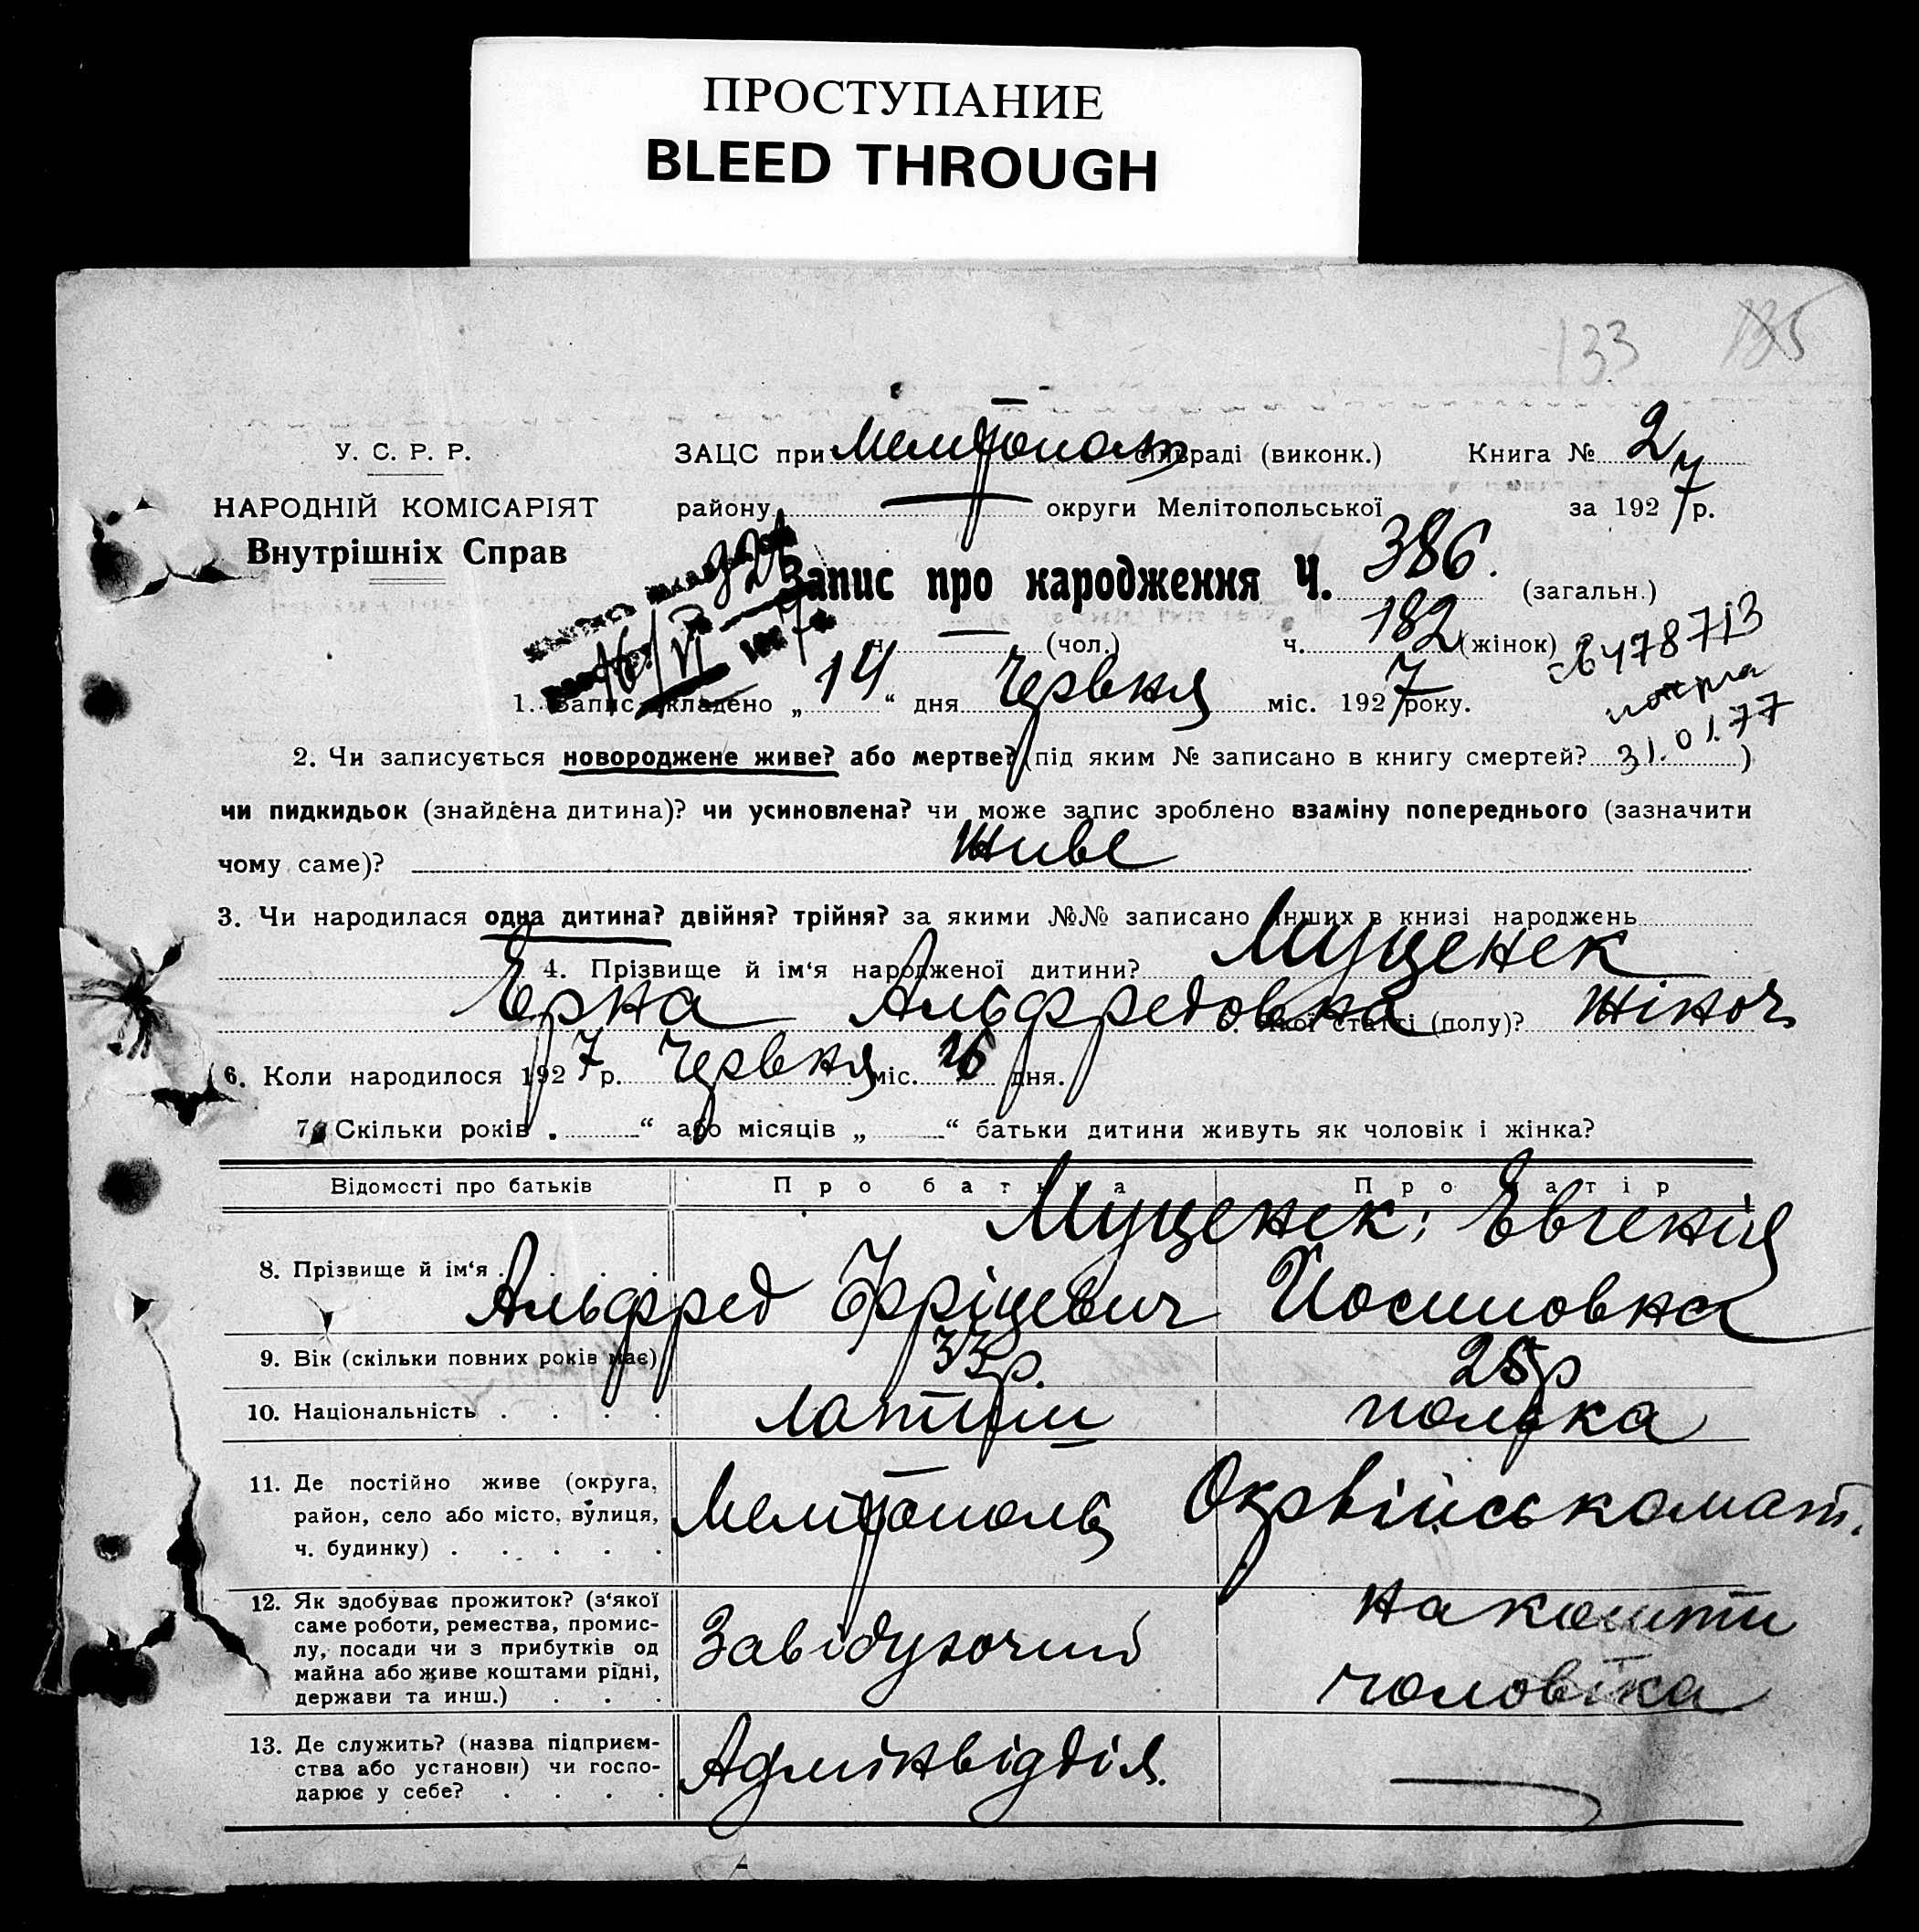 ПРОСТУПАНИЕ
BLEED THROUGH
133 135
У. С. Р. Р.
НАРОДНІЙ КОМІСАРІЯТ
Внутрішніх Справ
ЗАЦС при сільраді (виконк.) Книга № 2
району — округи Мелітопольської за 1927 р.
Запис про народження Ч. 386. (загальн.)
ч. — (чол.) ч. 182 (жінок)
478713
31.01.77
16/VI
1. Запис складено „14“ дня Червня міс. 1927 року.
2. Чи записується новороджене живе? або мертве? (під яким № записано в книгу смертей? )
чи пидкидьок (знайдена дитина)? чи усиновлена? чи може запис зроблено взаміну попереднього (зазначити
чому саме)? живе
3. Чи народилася одна дитина? двійня? трійня? за якими №№ записано інших в книзі народжень
4. Прізвище й ім‘я народженої дитини? Муценек
Ерна Альфредовна якої статті (полу)? жіноч.
6. Коли народилося 1927 р. Червня міс. дня.
7. Скільки років „ “ або місяців „ “ батьки дитини живуть як чоловік і жінка?
Відомості про батьків Про батька Про матір
8. Прізвище й ім‘я . . . .
Муценек: Евгенія
Альфред Фріцевич Йосиповна
9. Вік (скільки повних років має) 33 р. 25 р
10. Національність . . . . латиш полька
11. Де постійно живе (округа,
район, село або місто, вулиця,
ч. будинку) . . . . .
Мелітополь Окрвійськомат.
12. Як здобуває прожиток? (з‘якої
саме роботи, ремества, промис-
лу, посади чи з прибутків од
майна або живе коштами рідні,
держави та инш.) . . .
Завідуючий на кошти
чоловіка
13. Де служить? (назва підприєм-
ства або установи) чи госпо-
дарює у себе? . . . .
Адмінвідділ. —